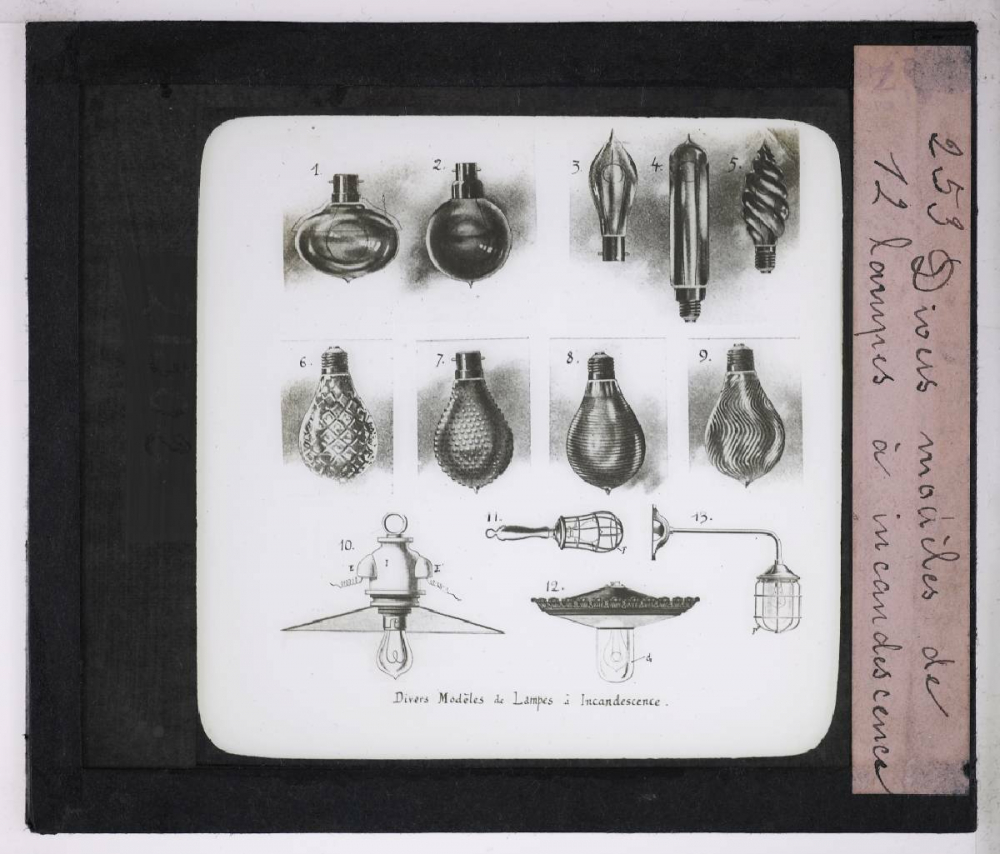 1.
2.
3.
4.
5.
6.
7.
8.
9.
10.
E
I
E
11.
13.
12.
4
Divers Modèles de Lampes à Incandescence.
253 Divers modèles de
12 lampes à incandescence